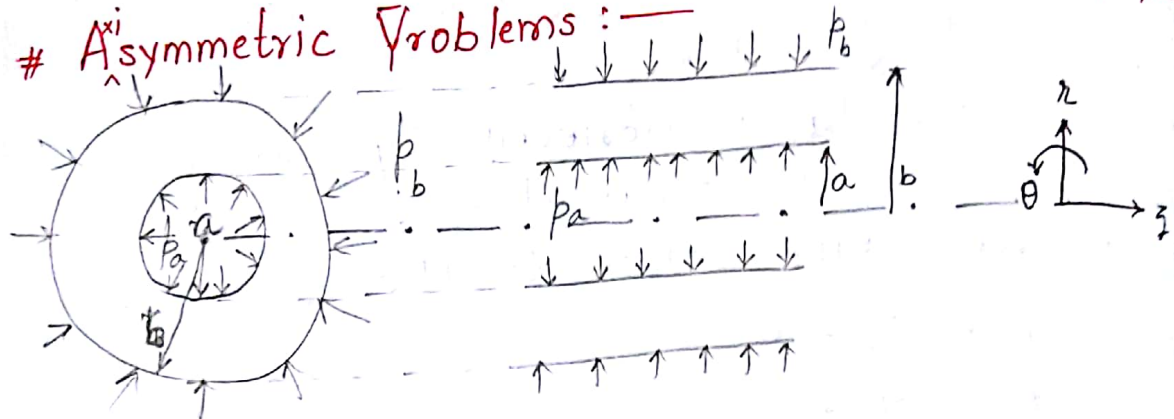 # Axisymmetric Problems :—
p_b
p_b
r
a
b
p_a
a
p_a
θ
z
b